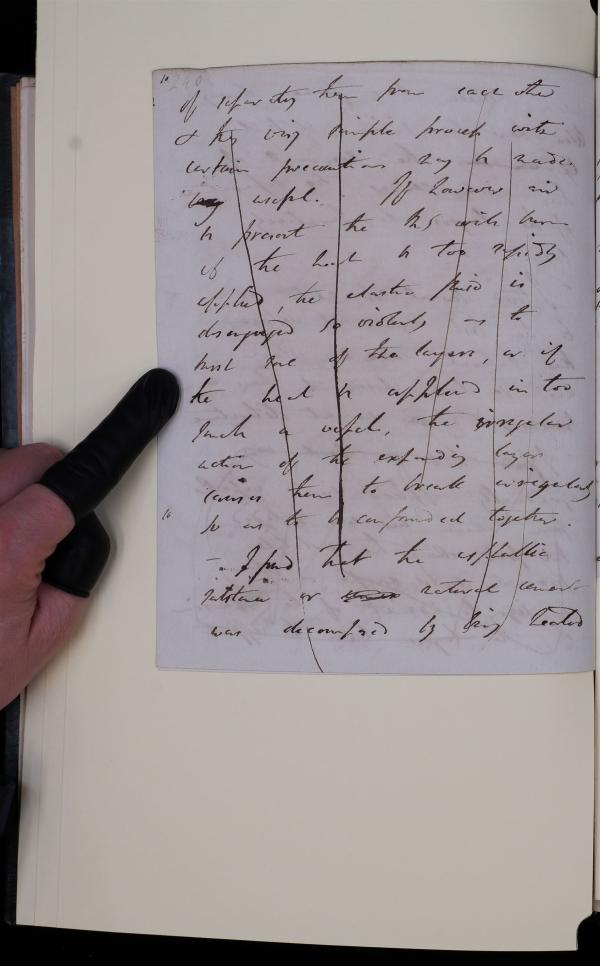 10 240
of separating them from each other
& this very simple process with
certain precautions may be made
very useful. If however air
be present the MS will burn
if the heat be too rapidly
applied, the elastic fluid is
disengaged so violently as to
burst some of the layers, or if
the heat be applied in too
small a vessel, the irregular
action of the expanding layers
causes them to break irregularly
16
so as to be confounded together.
– I found that the asphaltic
substance or natural cement
was decomposed by being heated